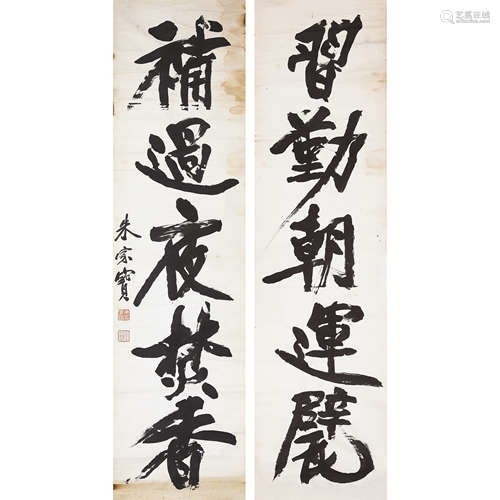 習勤朝運甓
補過夜焚香
朱家寶